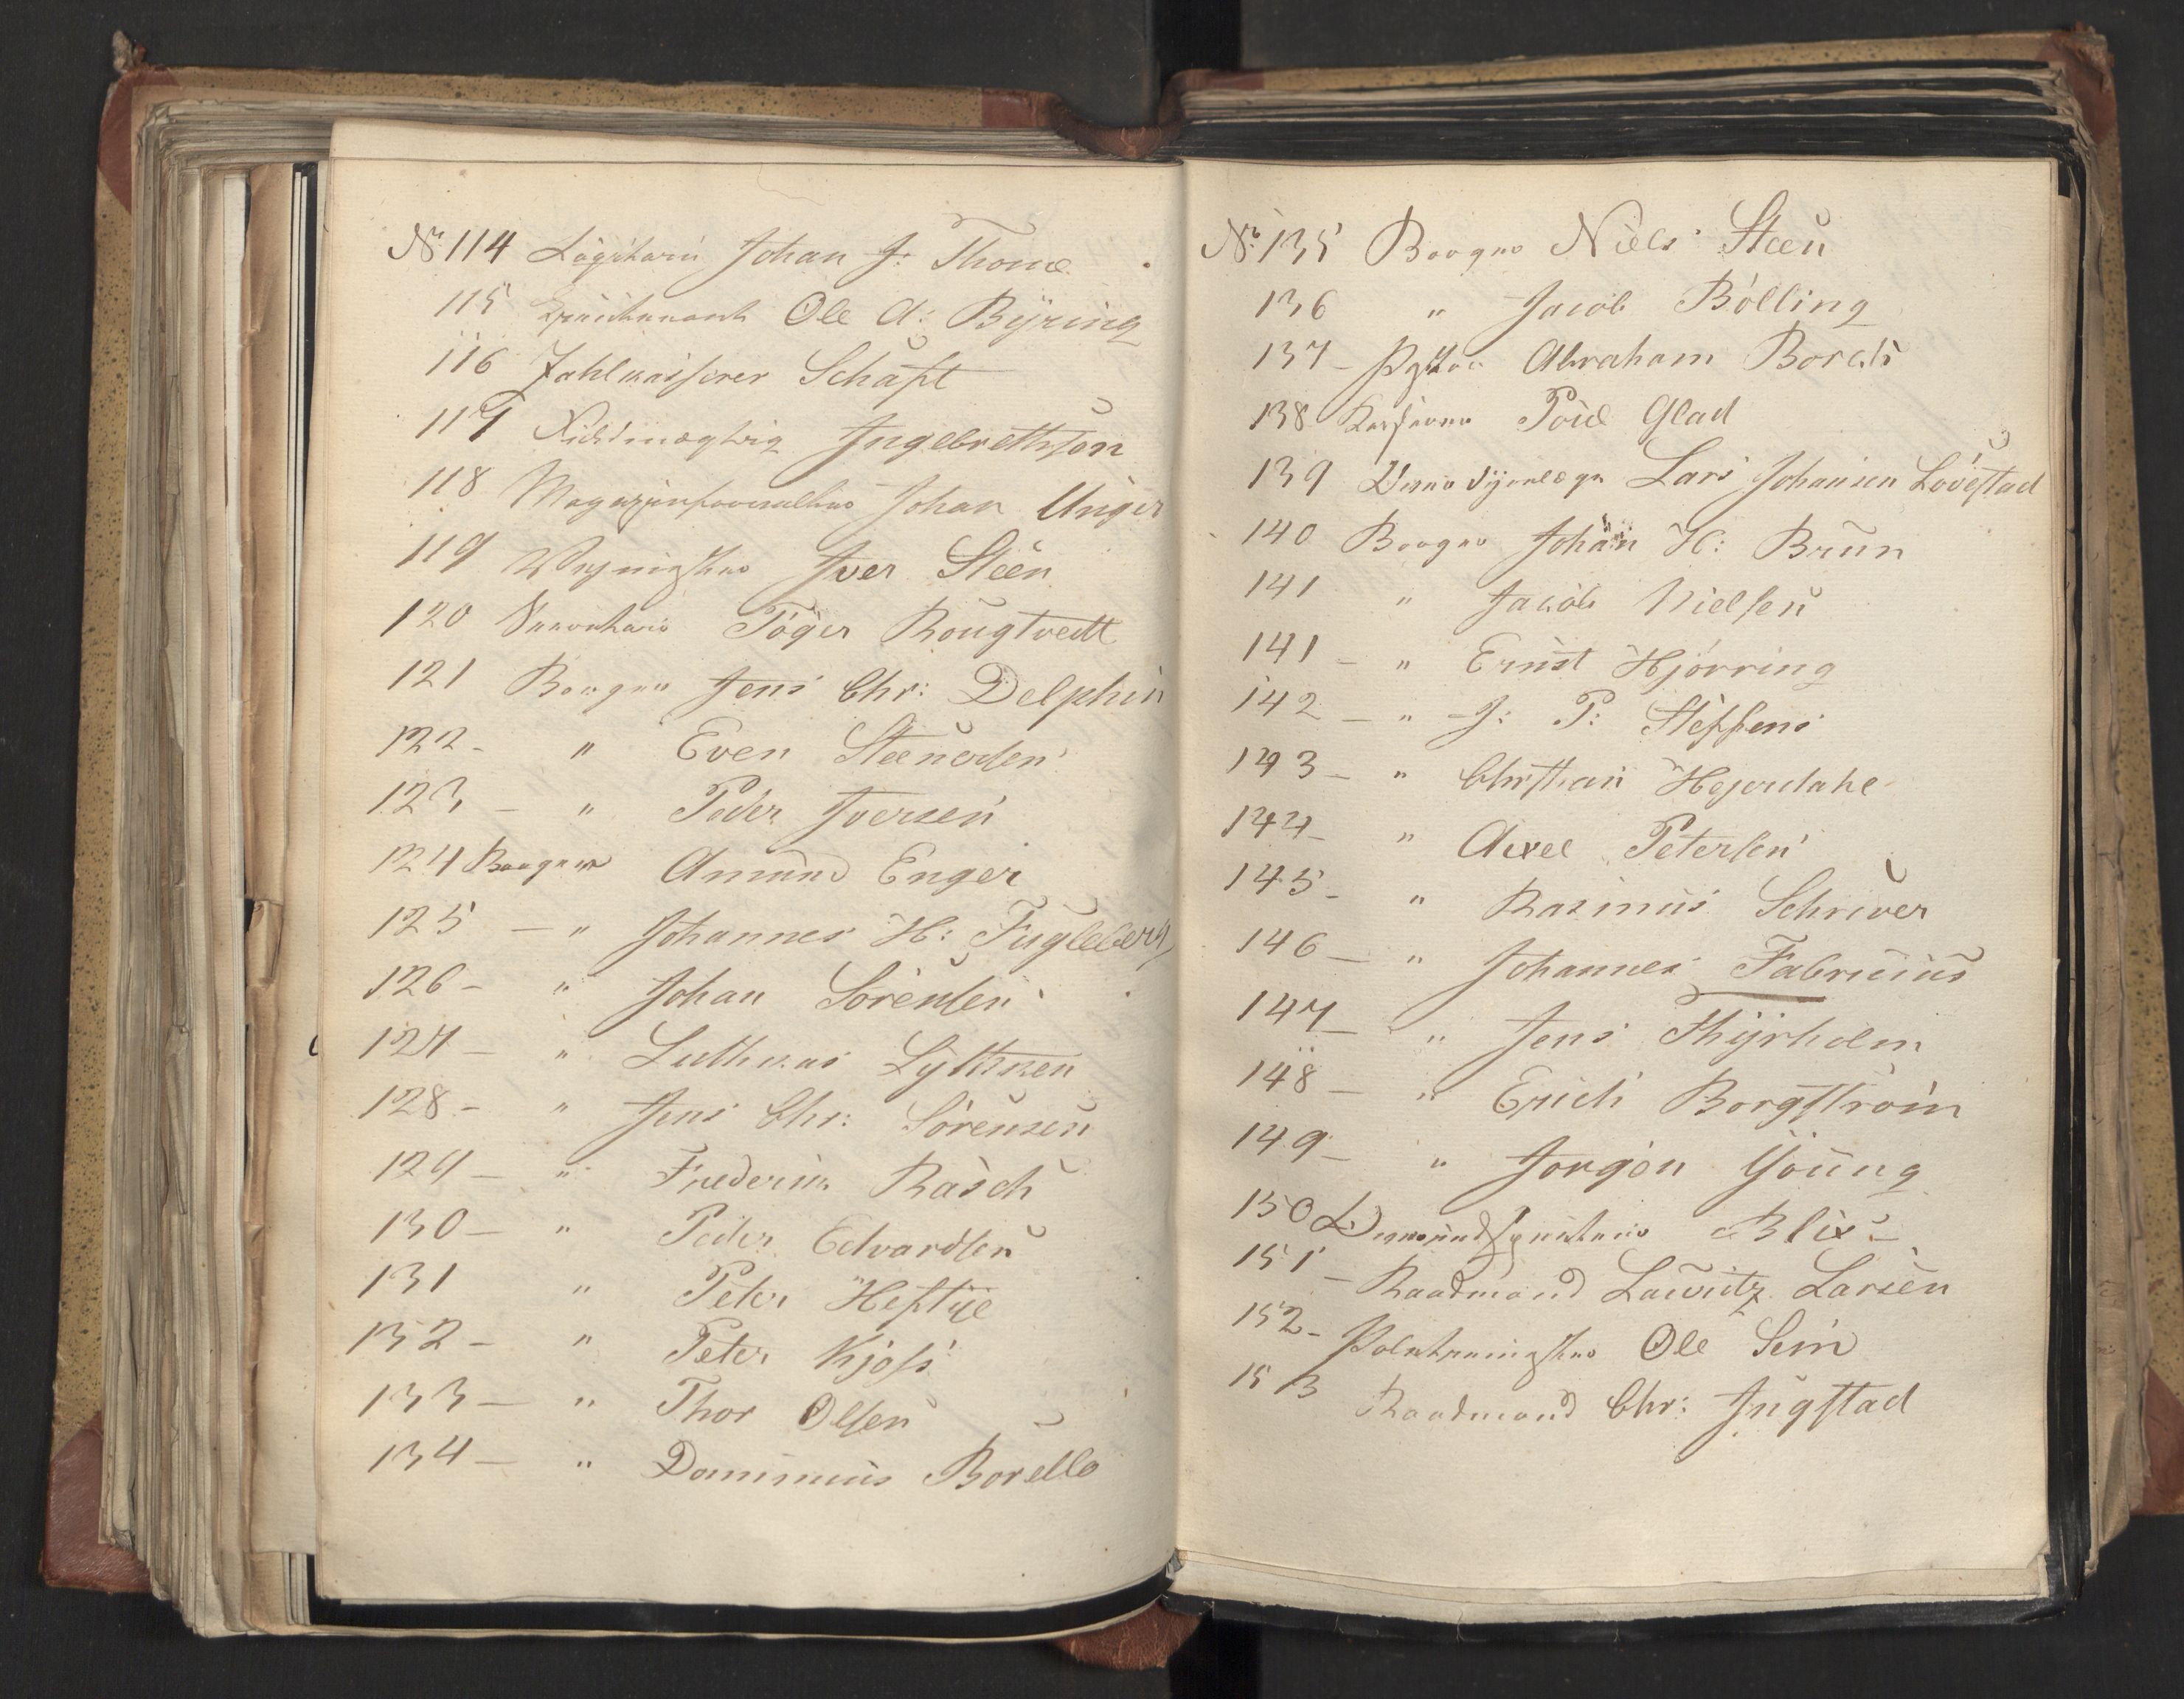 No 114 Johan J: Thome
115 Ole A: Byring
116 Zahlkasserer Schäft
117 Ingebrethson
118 Magazinforvalter Johan Unger
119 Veymester Iver Steen
120 Töger Rougtvedt
121 Borger Jens Chr: Delphin
122 - " Even Steenersen
123 - " Peder Iversen
124 Borger Amund Enger
125 - " Johannes H: Fugleberg
126 - " Johan Sörensen
127 - " Lythzen
128 - " Jens Chr: Sörensen
129 - " Frederik Rasch
130 - " Peder Edvardsen
131 " Peter Heftye
132 - " Peter Kjoss
133 - " Thor Olsen
134 - " Borello
No 135 Borger Niels Steen
136 " Jacob Bölling
137 - Abraham Borch
138 Poul Glad
139 Lars Johansen Lövestad
140 Borger Johan H: Brun
141 " Jacob Nielsen
141 - " Ernst Hjorring
142 - " J: P: Steffens
143 - " Christian Hejerdahl
144 - " Axel Petersen
145 - " Rasmus Schriver
146 - " Johannes Fabricius
147 - " Jens Thyrholm
148 - " Erich Borgström
149 - " Jorgen Young
150 Blix
151 - Raadmand Lawritz Larsen
152 - Ole Sem
153 Raadmand Chr: Jngstad